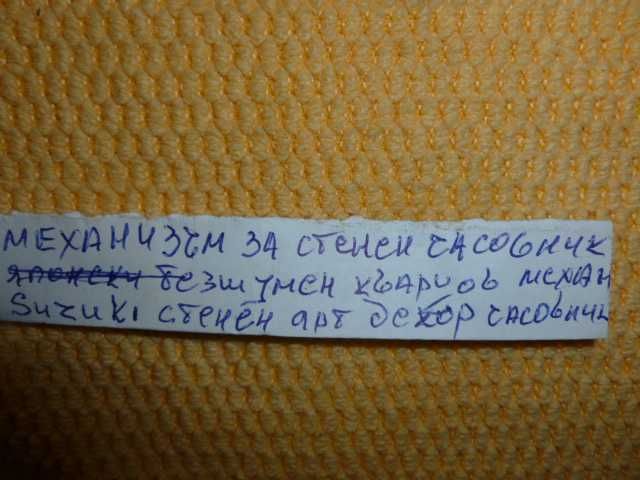 МЕХАНИЗЪМ ЗА СТЕНЕН ЧАСОВНИК
японски безшумен кварцов механ
Suzuki стенен арт декор часовник